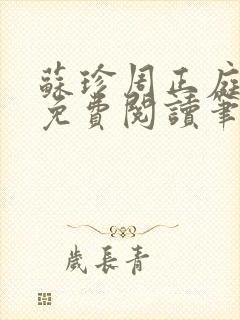 蘇珍周正庭
免費閱讀筆
歲長青